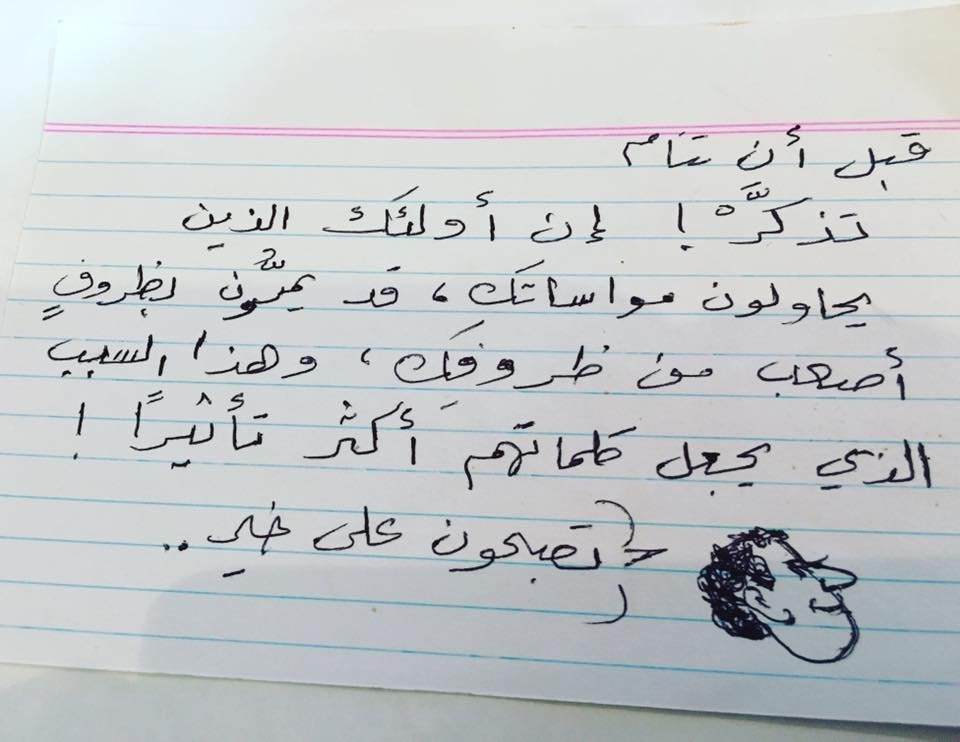 قبل أن تنام
تذكَّرْ ! إن أولئك الذين
يحاولون مواساتك، قد يمرُّون بظروفٍ
أصعب من ظروفكَ، وهذا السبب
الذي يجعل كلماتهم أكثر تأثيرًا !
تصبحون على خير..